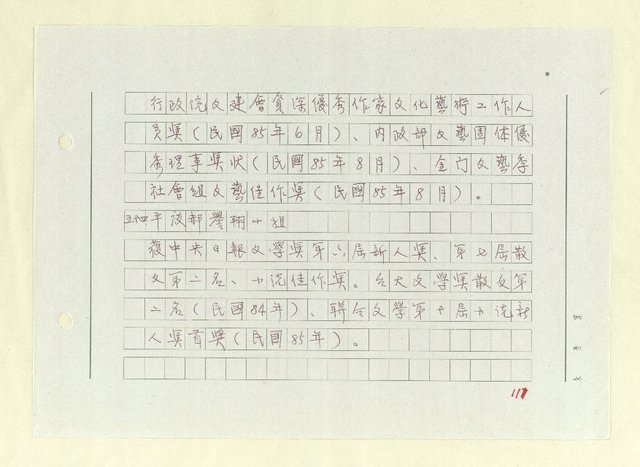 行政院文建會資深優秀作家文化藝術工作人
員獎(民國85年6月)、內政部文藝團体優
秀理事獎狀(民國85年8月)、金门文藝季
社會組文藝佳作獎(民國85年8月)。
小姐
獲中央日報文學獎第六屆新人獎、第七屆散
文第二名、小說佳作獎。台大文學獎散文第
二名(民國84年)、聯合文學第十屆小說新
人獎首獎(民國85年)。
117